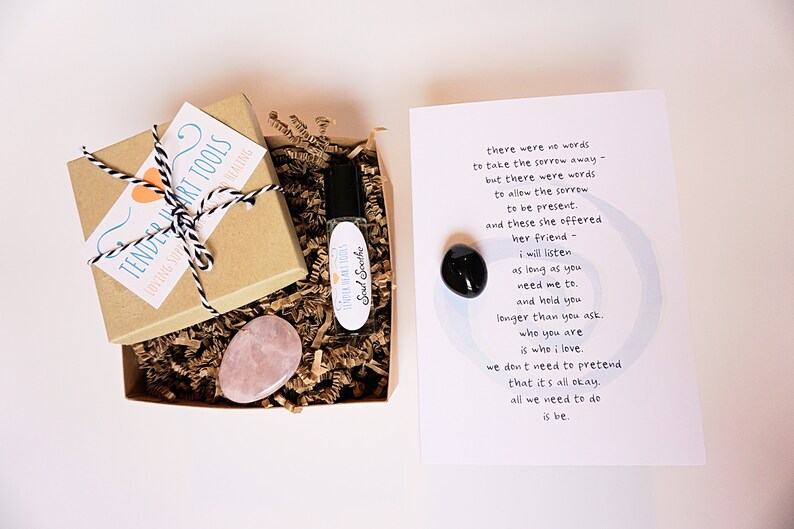 TENDER HEART TOOLS
LOVING SUPPORT HEALING
TENDER HEART TOOLS
Soul Soothe
there were no words
to take the sorrow away -
but there were words
to allow the sorrow
to be present.
and these she offered
her friend -
i will listen
as long as you
need me to.
and hold you
longer than you ask.
who you are
is who i love.
we don't need to pretend
that it's all okay.
all we need to do
is be.